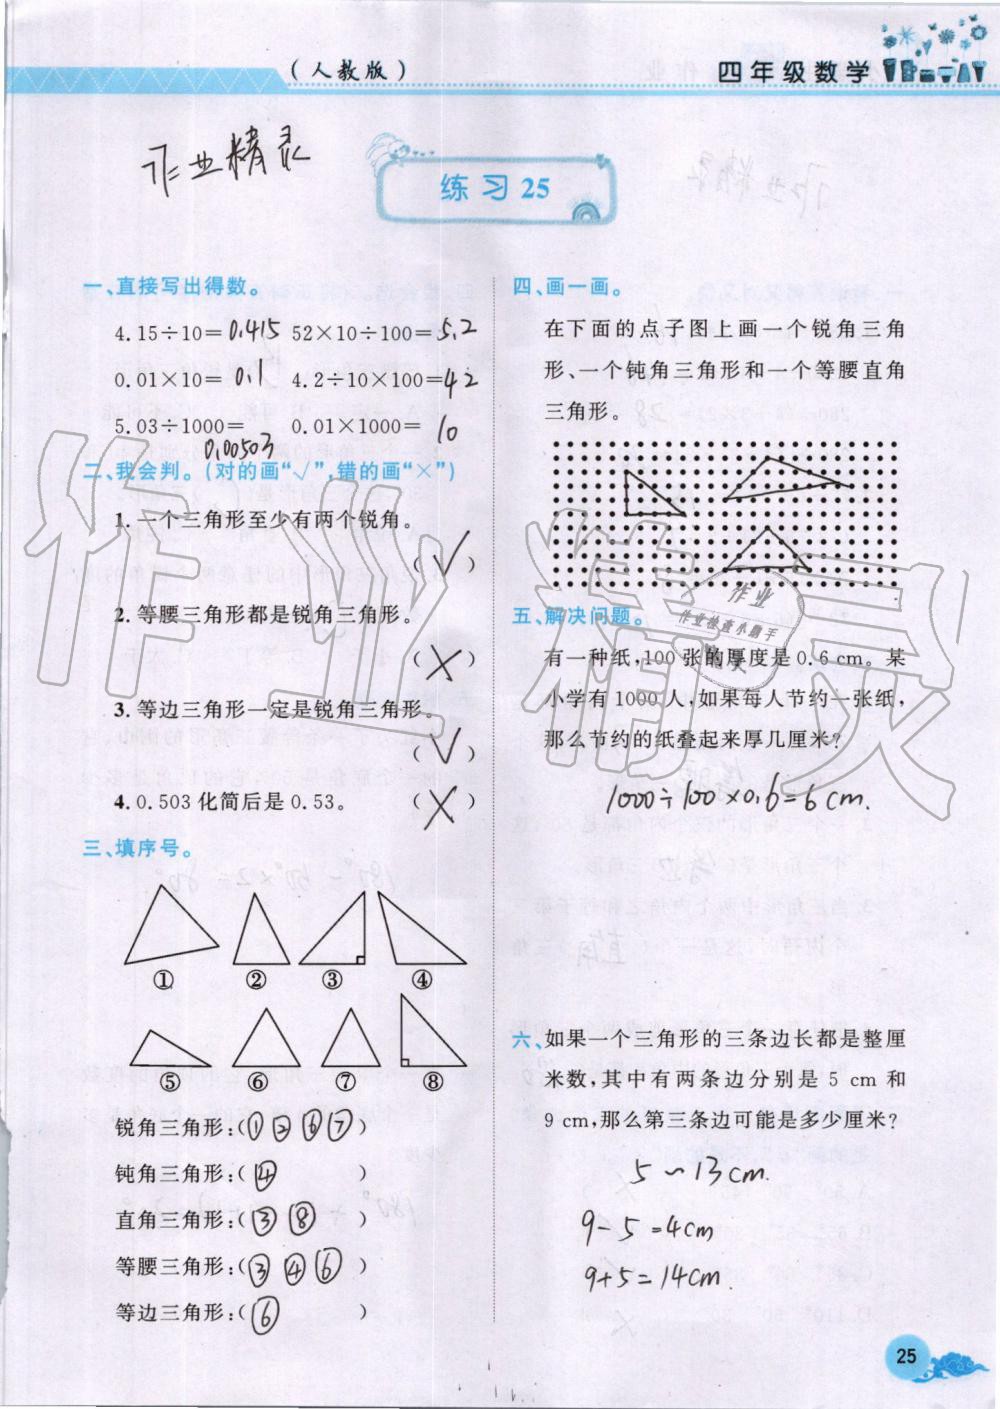 (人教版)
四年级数学
作业精灵
练习25
一、直接写出得数。
4.15÷10=0.415 52×10÷100=5.2
0.01×10=0.1 4.2÷10×100=42
5.03÷1000=0.00503 0.01×1000=10
二、我会判。(对的画“√”,错的画“×”)
1.一个三角形至少有两个锐角。
(√)
2.等腰三角形都是锐角三角形。
(×)
3.等边三角形一定是锐角三角形。
(√)
4.0.503化简后是0.53。 (×)
三、填序号。
① ② ③ ④
⑤ ⑥ ⑦ ⑧
锐角三角形:(①②⑥⑦)
钝角三角形:(④)
直角三角形:(③⑧)
等腰三角形:(③④⑥)
等边三角形:(⑥)
四、画一画。
在下面的点子图上画一个锐角三角
形、一个钝角三角形和一个等腰直角
三角形。
五、解决问题。
有一种纸,100张的厚度是0.6cm。某
小学有1000人,如果每人节约一张纸,
那么节约的纸叠起来厚几厘米?
1000÷100×0.6=6cm.
六、如果一个三角形的三条边长都是整厘
米数,其中有两条边分别是5cm和
9cm,那么第三条边可能是多少厘米?
5~13cm.
9-5=4cm
9+5=14cm.
25
作业精灵
作业
作业检查小助手